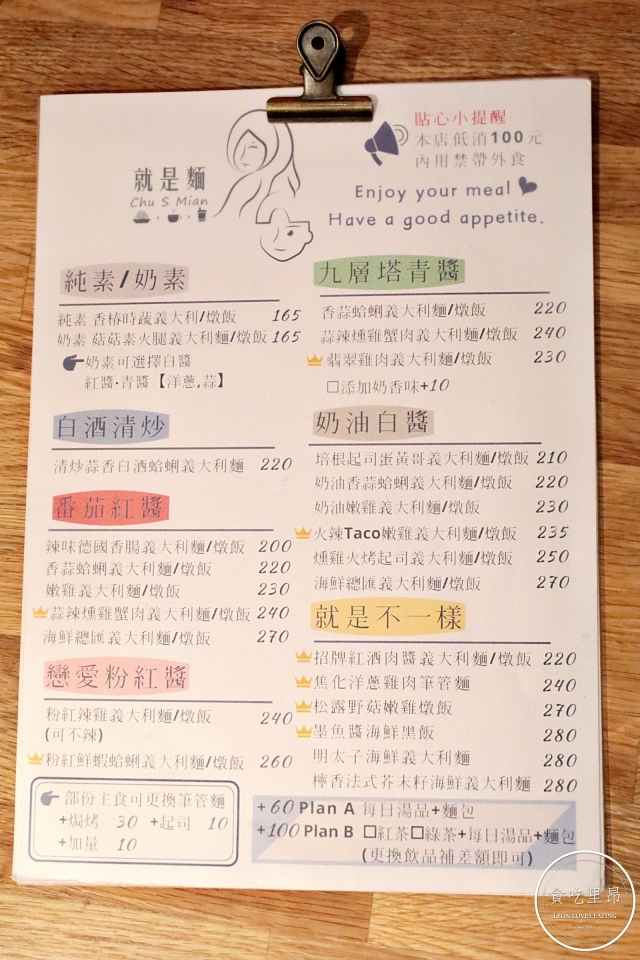 貼心小提醒
本店低消100元
內用禁帶外食
就是麵
Chu S Mian
Enjoy your meal
Have a good appetite.
純素/奶素
純素 香椿時蔬義大利/燉飯 165
奶素 菇菇素火腿義大利麵/燉飯 165
奶素可選擇白醬
紅醬·青醬【洋蔥,蒜】
白酒清炒
清炒蒜香白酒蛤蜊義大利麵 220
番茄紅醬
辣味德國香腸義大利麵/燉飯 200
香蒜蛤蜊義大利麵/燉飯 220
嫩雞義大利麵/燉飯 230
蒜辣燻雞蟹肉義大利麵/燉飯 240
海鮮總匯義大利麵/燉飯 270
戀愛粉紅醬
粉紅辣雞義大利麵/燉飯 240
(可不辣)
粉紅鮮蝦蛤蜊義大利麵/燉飯 260
部份主食可更換筆管麵
+焗烤 30 +起司 10
+加量 10
九層塔青醬
香蒜蛤蜊義大利麵/燉飯 220
蒜辣燻雞蟹肉義大利麵/燉飯 240
翡翠雞肉義大利麵/燉飯 230
□添加奶香味+10
奶油白醬
培根起司蛋黃哥義大利麵/燉飯 210
奶油香蒜蛤蜊義大利麵/燉飯 220
奶油嫩雞義大利麵/燉飯 230
火辣Taco嫩雞義大利麵/燉飯 235
燻雞火烤起司義大利麵/燉飯 250
海鮮總匯義大利麵/燉飯 270
就是不一樣
招牌紅酒肉醬義大利麵/燉飯 220
焦化洋蔥雞肉筆管麵 240
松露野菇嫩雞燉飯 270
墨魚醬海鮮黑飯 280
明太子海鮮義大利麵 280
檸香法式芥末籽海鮮義大利麵 280
+60 Plan A 每日湯品+麵包
+100 Plan B □紅茶□綠茶+每日湯品+麵包
(更換飲品補差額即可)
貪吃里昂
LEON LOVES EATING